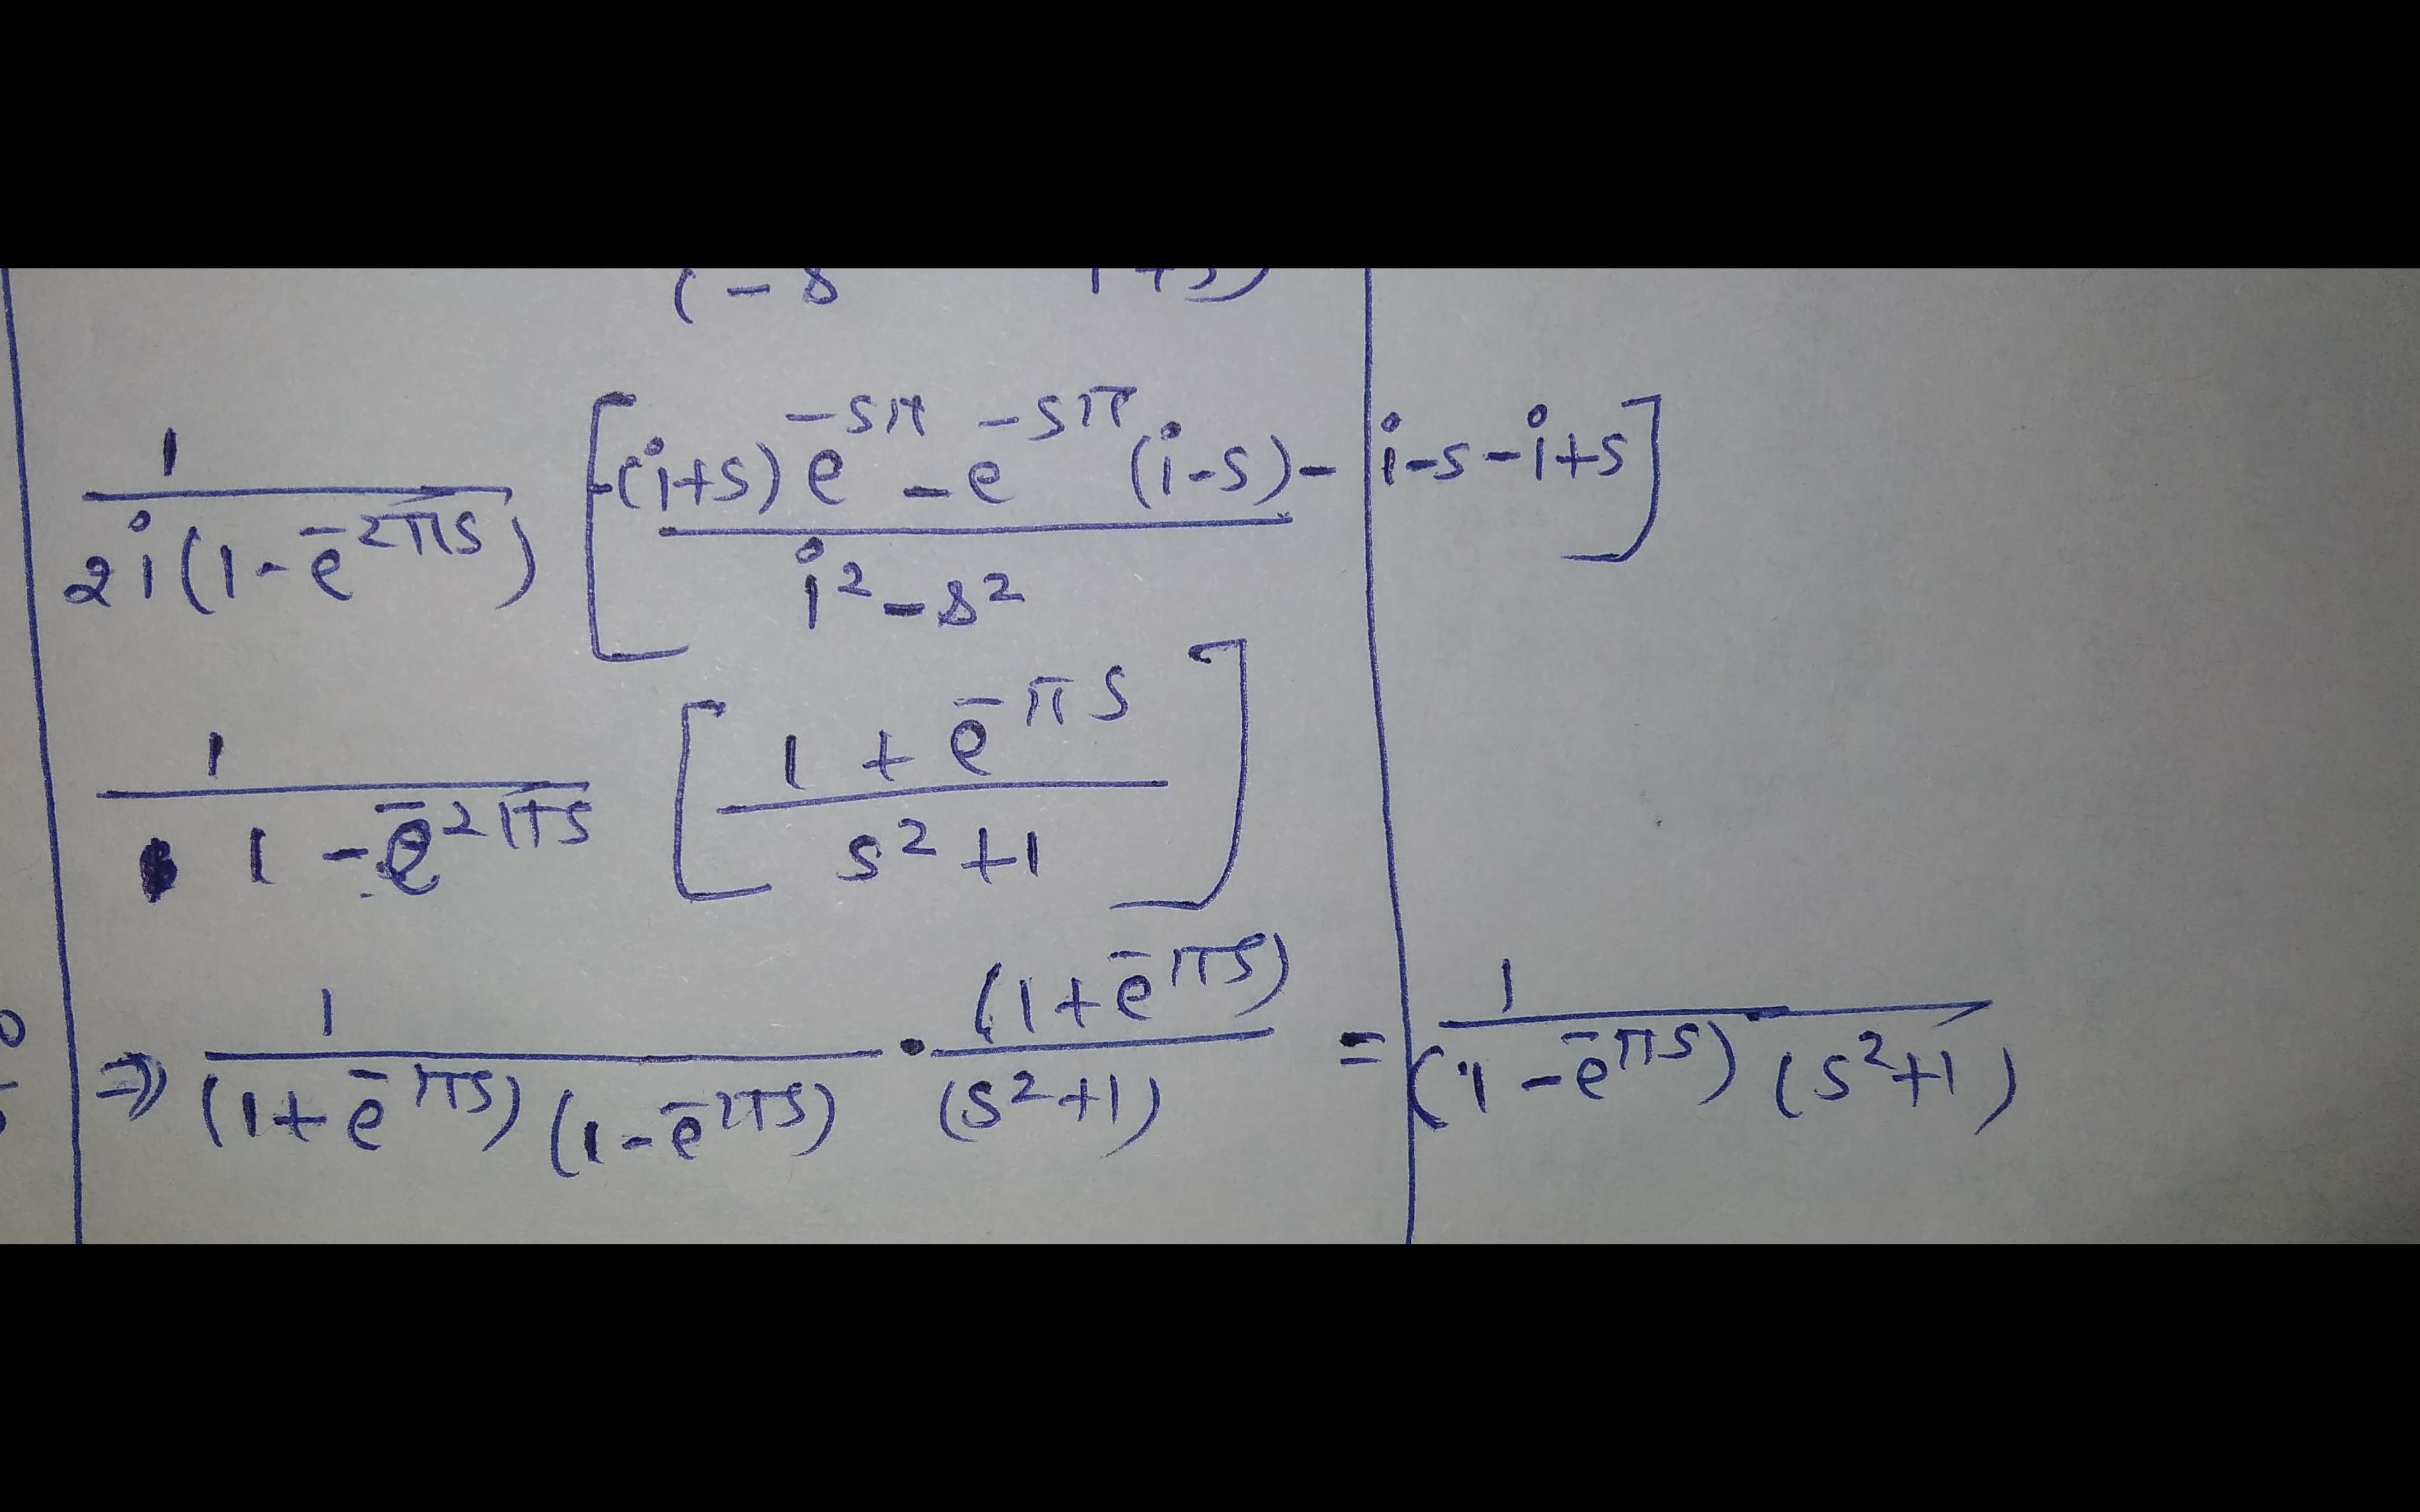 (-s 1+s)
1/2i(1-e^-2πs) [-(i+s)e^-sπ - e^-sπ(i-s) - i-s-i+s / i²-s²]
1/1-e^-2πs [1+e^-πs / s²+1]
⇒ 1/(1+e^-πs)(1-e^-πs) · (1+e^-πs)/(s²+1) = 1/(1-e^-πs)(s²+1)